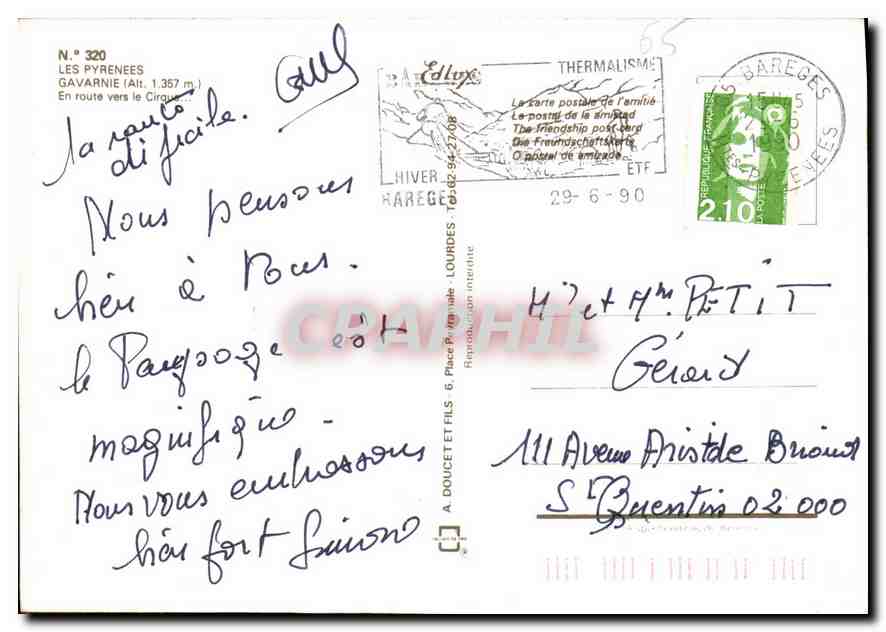 N.° 320
LES PYRENEES
GAVARNIE (Alt. 1.357 m.)
En route vers le Cirque...
la
difficile.
Nous pensons
bien à Vous.
le Paysage est
magnifique.
Nous vous embrassons
bien fort Simone
A. DOUCET ET FILS - 6, Place Peyramale - LOURDES - Tél. 62-94-27-08
Reproduction interdite
Edlux
La carte postale de l'amitié
La postal de la amistad
The friendship post card
Die Freundschaftskarte
O postal de amizade
THERMALISME
HIVER
ETE
BAREGES
29-6-90
65 BAREGES
1990
HTES-PYRENEES
REPUBLIQUE FRANÇAISE
2,10
LA POSTE
65
Mr et Mme PETIT
Gérard
111 Avenue Aristide Briand
St Quentin 02 000
CPAPHIL